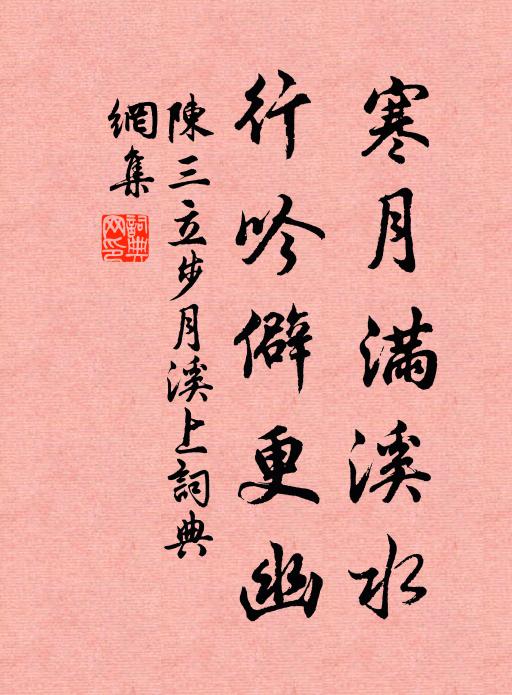 寒月滿溪水
行吟僻更幽
陳三立步月溪上詞典
網集
詞典
网印